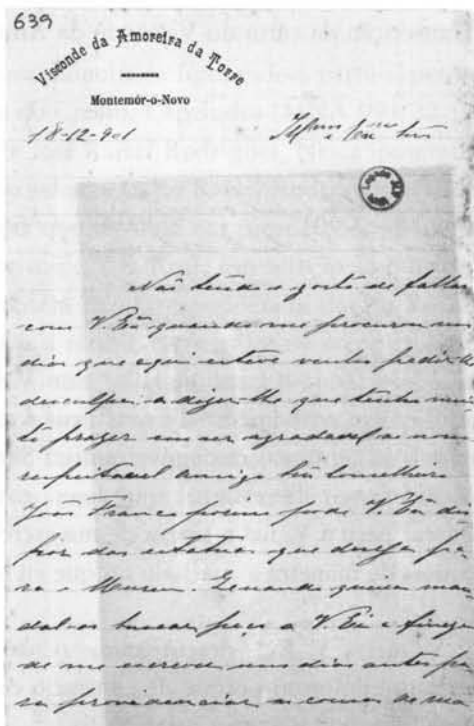 639
Visconde da Amoreira da Torre
Montemór-o-Novo
18-12-901
Illmo e Exmo Snr
Não tendo o gosto de fallar
com V. Exa quando me procurou nos
dias que aqui esteve venho pedir-lhe
desculpa e dizer-lhe que tenho mui-
to prazer em ser agradavel ao nosso
respeitavel amigo Snr Conselheiro
João Franco porisso pode V. Exa dis-
por das estatuas que deseja pa-
ra o Museu. Quando queira man-
dal-as buscar peço a V. Exa a fineza
de me escrever uns dias antes pa-
ra providenciar a